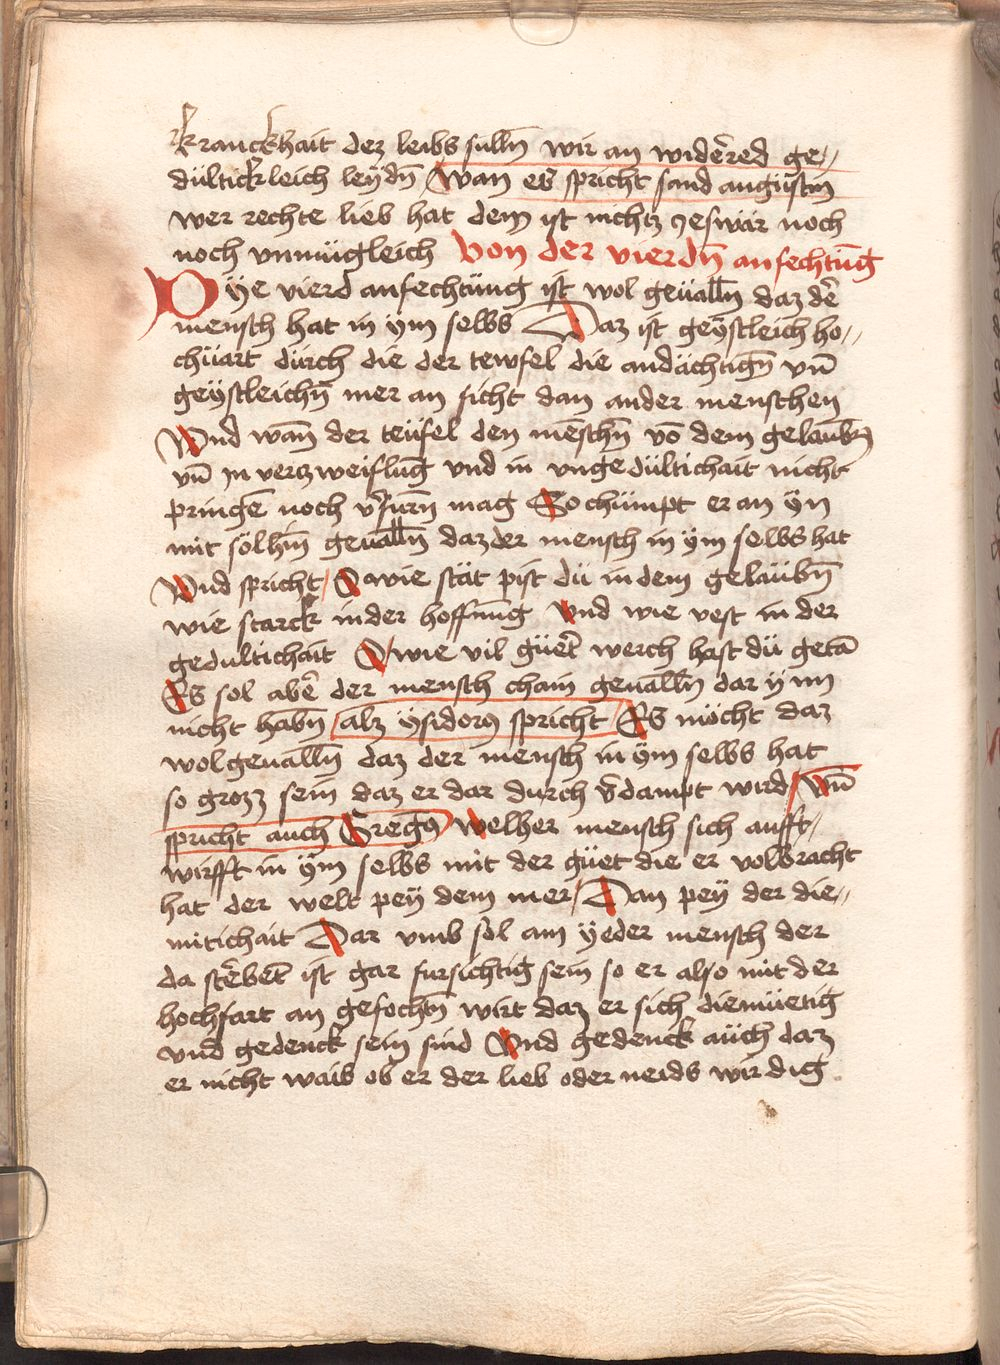 kranckhait dez leibs sulln̄ wir an widẽred ge//
dültickleich leẏdn̄ Wan es spricht sand augustin
wer rechte lieb hat dem ist nichtz geswär noch
noch vnmügleich Von der vierdn̄ anfechtūg
Dẏe vierd anfechtüng ist wol geualln̄ daz dẽ
mensch hat in ẏm selbs Daz ist geẏstleich ho//
chüart dürch die der tewfel die andächtign̄ vn̄
geẏstleichn̄ mer an ficht dan ander menschen
Vnd wan̄ der teüfel den mēschn̄ vō dem gelaubn̄
vn̄ jn verzweiflūg vnd in vngedültichait nicht
pringē noch v̄furn̄ mag So chümpt er an ẏn
mit sölhn̄ geualln̄ daz der mensch in ẏm selbs hat
Vnd spricht / O wie stät pist dü in dem gelaübn̄
wie starck in der hoffnūg Vnd wie vest in der
gedultichait O wie vil güet̄ werch hast dü getā
Es sol abẽ der mensch chain geualln̄ dar ẏnn
nicht habn̄ alz ẏsidorꝯ spricht Es möcht daz
wolgeualln̄ daz der mensch in ẏm selbs hat
so grozz sein daz er dar durch v̄dampt wird / Vn̄
spricht auch Gregꝯ Welher mensch sich aufft/
wirfft in ẏm selbs mit der güet die er volbracht
hat der welt peẏ dem mer / Dan peẏ der die//
mütichait Dar vmb sol ain ẏeder mensch der
da stẽbet̄ ist gar fursichtig sein so er also mit der
hochfart an gefochtn̄ wirt daz er sich diemüetig
vnd gedenck sein sünd Vnd gedenck aüch daz
er nicht wais ob er der lieb oder neids wirdig